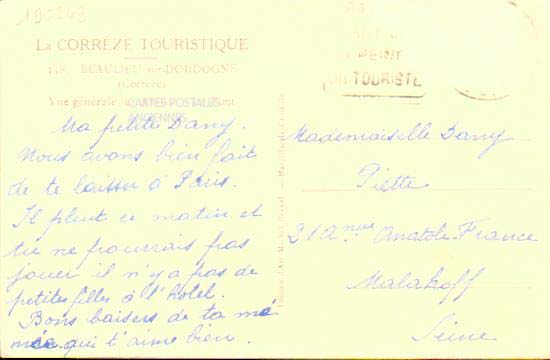 190243
La CORRÈZE TOURISTIQUE
148. BEAULIEU-sur-DORDOGNE
(Corrèze)
Vue générale
CARTES POSTALES
ANCIENNES
Ma petite Dany.
Nous avons bien fait
de te laisser à Paris.
Il pleut ce matin et
tu ne pourrais pas
jouer il n'y a pas de
petites filles à l'hotel.
Bons baisers de ta mé
mée qui t'aime bien.
POINT
DU TOURISTE
Mademoiselle Dany
Piette
21 Anatole France
Malakoff
Seine